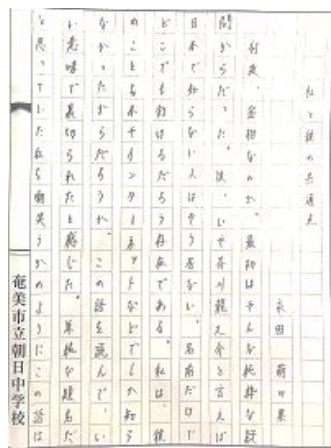 私と彼の共通点
永田 萌々果
村夫、蜜柑なのか。最初はそんな純粋な疑
問からだった。彼、いや芥川龍之介と言えば
日本で知らない人はそう居ない。名前だけで
どこまでも釣れるだろう存在である。私は、彼
のことを本やインターネットなどでしか知ら
なかったからだろうか。この話を読んで、いろ
い意味で裏切られたと感じた。単純な題名だ
と思っていた私を嘲笑うかのようにこの話は
奄美市立朝日中学校